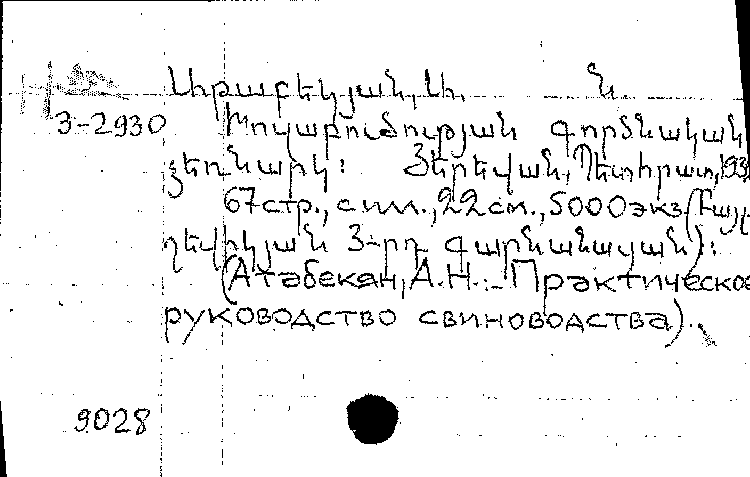 Աթաբեկյան, Ա. Ն.
3-2930 Խոզաբուծության գործնական
ձեռնարկ: Յերեվան, Պետհրատ, 193
67 стр., с илл., 22 см., 5000 экз. (Բայլ
շեվիկյան 3-րդ գարնանացան):
(Атабекян, А.Н.- Практическое
руководство свиноводства).
9028